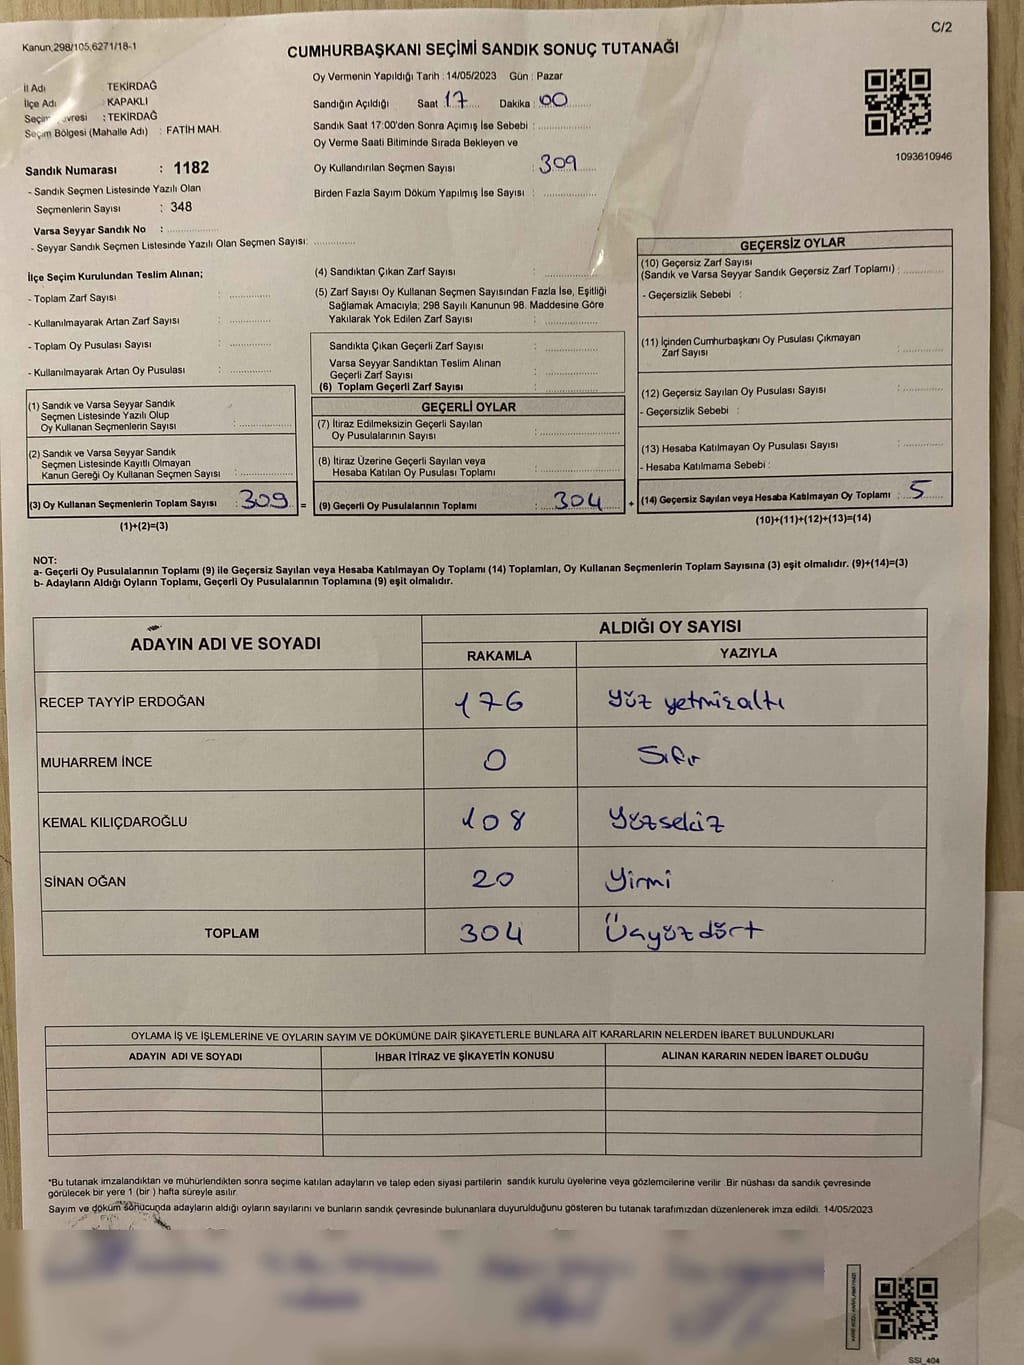 C/2
Kanun,298/105,6271/18-1
CUMHURBAŞKANI SEÇİMİ SANDIK SONUÇ TUTANAĞI
İl Adı TEKİRDAĞ
İlçe Adı : KAPAKLI
Seçim Çevresi : TEKİRDAĞ
Seçim Bölgesi (Mahalle Adı) : FATİH MAH.
Sandık Numarası : 1182
- Sandık Seçmen Listesinde Yazılı Olan
Seçmenlerin Sayısı : 348
Varsa Seyyar Sandık No :
- Seyyar Sandık Seçmen Listesinde Yazılı Olan Seçmen Sayısı:
Oy Vermenin Yapıldığı Tarih : 14/05/2023 Gün : Pazar
Sandığın Açıldığı Saat 17 Dakika : 00
Sandık Saat 17:00'den Sonra Açımış İse Sebebi :
Oy Verme Saati Bitiminde Sırada Bekleyen ve
Oy Kullandırılan Seçmen Sayısı : 309
Birden Fazla Sayım Döküm Yapılmış İse Sayısı :
1093610946
İlçe Seçim Kurulundan Teslim Alınan;
- Toplam Zarf Sayısı :
- Kullanılmayarak Artan Zarf Sayısı :
- Toplam Oy Pusulası Sayısı :
- Kullanılmayarak Artan Oy Pusulası :
(1) Sandık ve Varsa Seyyar Sandık
Seçmen Listesinde Yazılı Olup
Oy Kullanan Seçmenlerin Sayısı :
(2) Sandık ve Varsa Seyyar Sandık
Seçmen Listesinde Kayıtlı Olmayan
Kanun Gereği Oy Kullanan Seçmen Sayısı :
(3) Oy Kullanan Seçmenlerin Toplam Sayısı : 309 =
(1)+(2)=(3)
(4) Sandıktan Çıkan Zarf Sayısı :
(5) Zarf Sayısı Oy Kullanan Seçmen Sayısından Fazla İse, Eşitliği
Sağlamak Amacıyla; 298 Sayılı Kanunun 98. Maddesine Göre
Yakılarak Yok Edilen Zarf Sayısı :
Sandıkta Çıkan Geçerli Zarf Sayısı :
Varsa Seyyar Sandıktan Teslim Alınan
Geçerli Zarf Sayısı :
(6) Toplam Geçerli Zarf Sayısı :
GEÇERLİ OYLAR
(7) İtiraz Edilmeksizin Geçerli Sayılan
Oy Pusulalarının Sayısı :
(8) İtiraz Üzerine Geçerli Sayılan veya
Hesaba Katılan Oy Pusulası Toplamı :
(9) Geçerli Oy Pusulalarının Toplamı : 304 +
GEÇERSİZ OYLAR
(10) Geçersiz Zarf Sayısı
(Sandık ve Varsa Seyyar Sandık Geçersiz Zarf Toplamı) :
- Geçersizlik Sebebi :
(11) İçinden Cumhurbaşkanı Oy Pusulası Çıkmayan
Zarf Sayısı :
(12) Geçersiz Sayılan Oy Pusulası Sayısı :
- Geçersizlik Sebebi :
(13) Hesaba Katılmayan Oy Pusulası Sayısı :
- Hesaba Katılmama Sebebi :
(14) Geçersiz Sayılan veya Hesaba Katılmayan Oy Toplamı : 5
(10)+(11)+(12)+(13)=(14)
NOT:
a- Geçerli Oy Pusulalarının Toplamı (9) ile Geçersiz Sayılan veya Hesaba Katılmayan Oy Toplamı (14) Toplamları, Oy Kullanan Seçmenlerin Toplam Sayısına (3) eşit olmalıdır. (9)+(14)=(3)
b- Adayların Aldığı Oyların Toplamı, Geçerli Oy Pusulalarının Toplamına (9) eşit olmalıdır.
ADAYIN ADI VE SOYADI ALDIĞI OY SAYISI
RAKAMLA YAZIYLA
RECEP TAYYİP ERDOĞAN 176 Yüz yetmişaltı
MUHARREM İNCE 0 Sıfır
KEMAL KILIÇDAROĞLU 108 Yüzsekiz
SİNAN OĞAN 20 Yirmi
TOPLAM 304 Üçyüzdört
OYLAMA İŞ VE İŞLEMLERİNE VE OYLARIN SAYIM VE DÖKÜMÜNE DAİR ŞİKAYETLERLE BUNLARA AİT KARARLARIN NELERDEN İBARET BULUNDUKLARI
ADAYIN ADI VE SOYADI İHBAR İTİRAZ VE ŞİKAYETİN KONUSU ALINAN KARARIN NEDEN İBARET OLDUĞU
*Bu tutanak imzalandıktan ve mühürlendikten sonra seçime katılan adayların ve talep eden siyasi partilerin sandık kurulu üyelerine veya gözlemcilerine verilir. Bir nüshası da sandık çevresinde
görülecek bir yere 1 (bir ) hafta süreyle asılır.
Sayım ve döküm sonucunda adayların aldığı oyların sayılarını ve bunların sandık çevresinde bulunanlara duyurulduğunu gösteren bu tutanak tarafımızdan düzenlenerek imza edildi. 14/05/2023
SSI_404